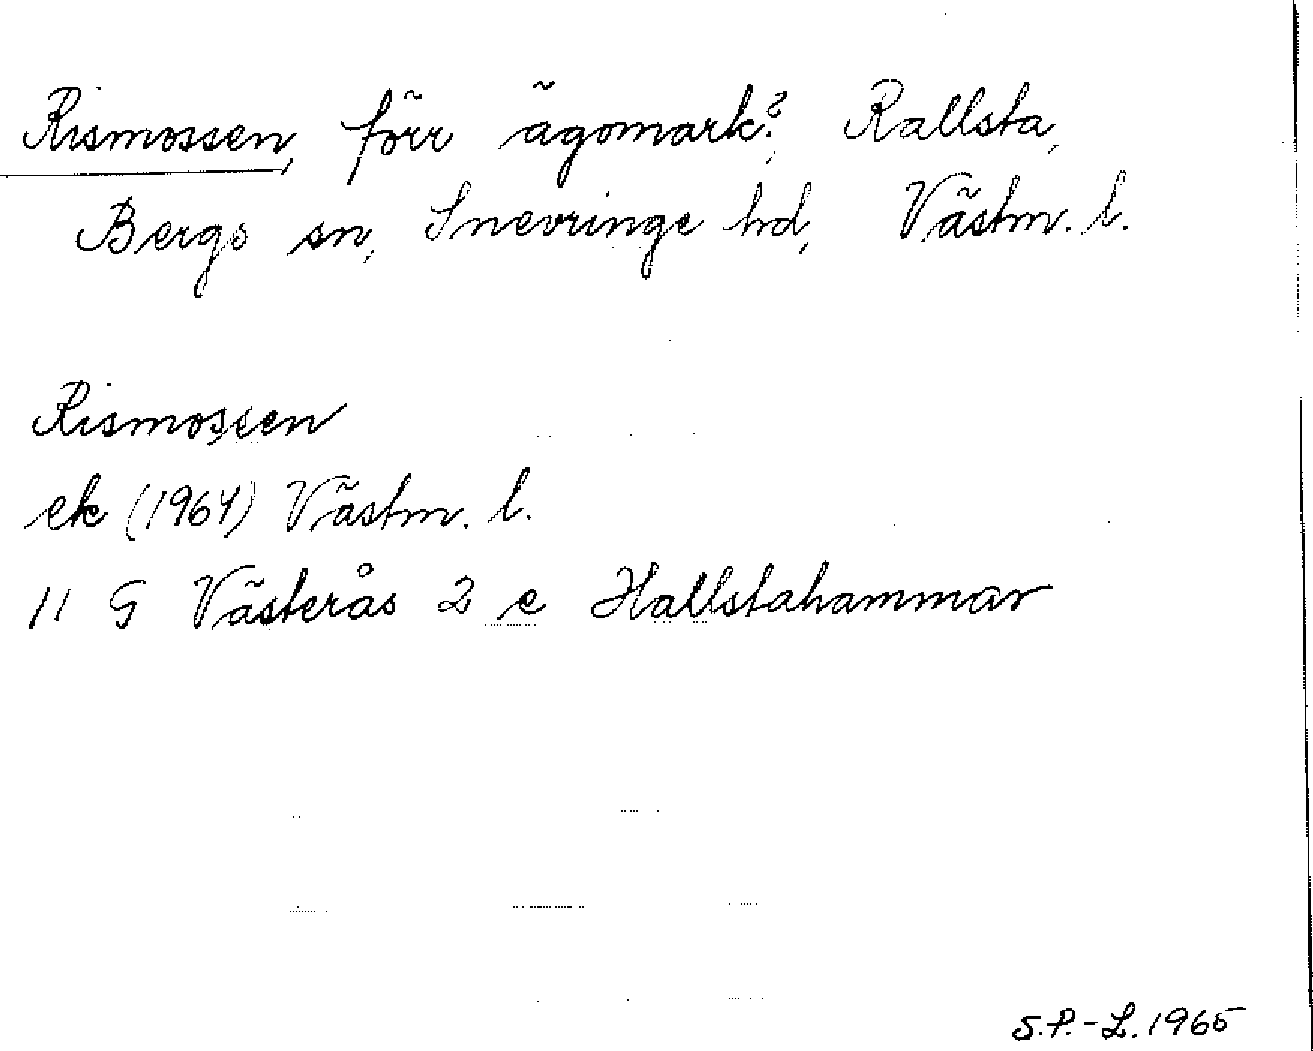 Rismossen, förr ägomark?, Rallsta,
Bergs sn, Snevringe hd, Västm. l.
Rismossen
ek (1964) Västm. l.
11 G Västerås 2 e Hallstahammar
S.P.-L. 1965